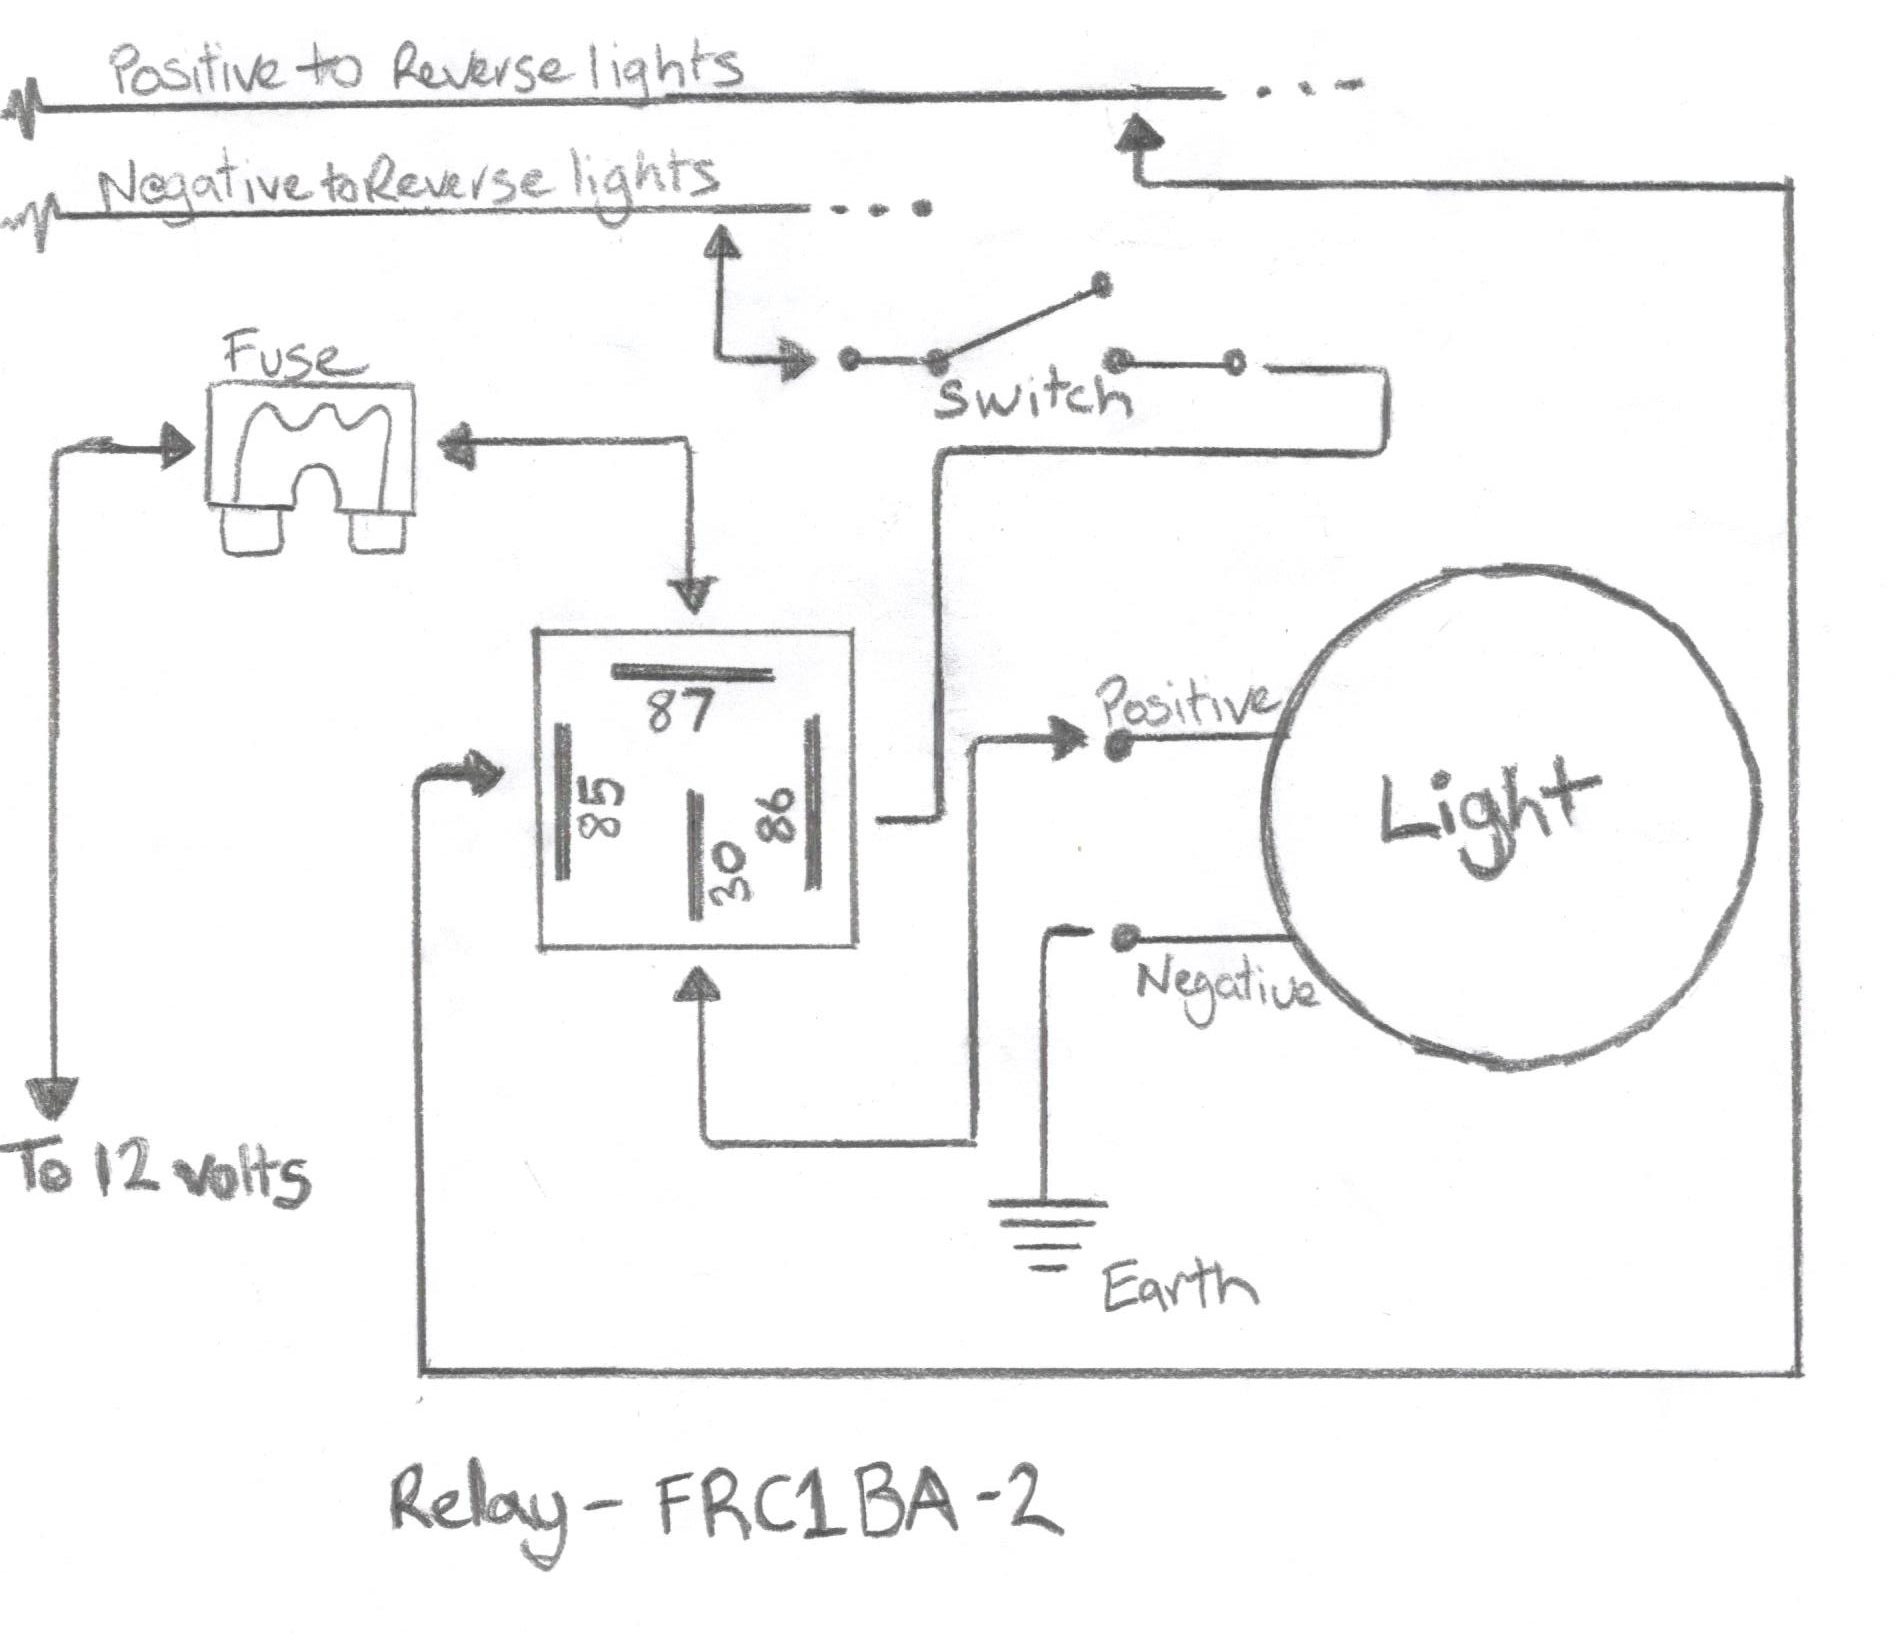 Positive to Reverse lights
Negative to Reverse lights
Fuse
Switch
87
85
86
30
Positive
Light
Negative
To 12 volts
Earth
Relay - FRC1BA-2